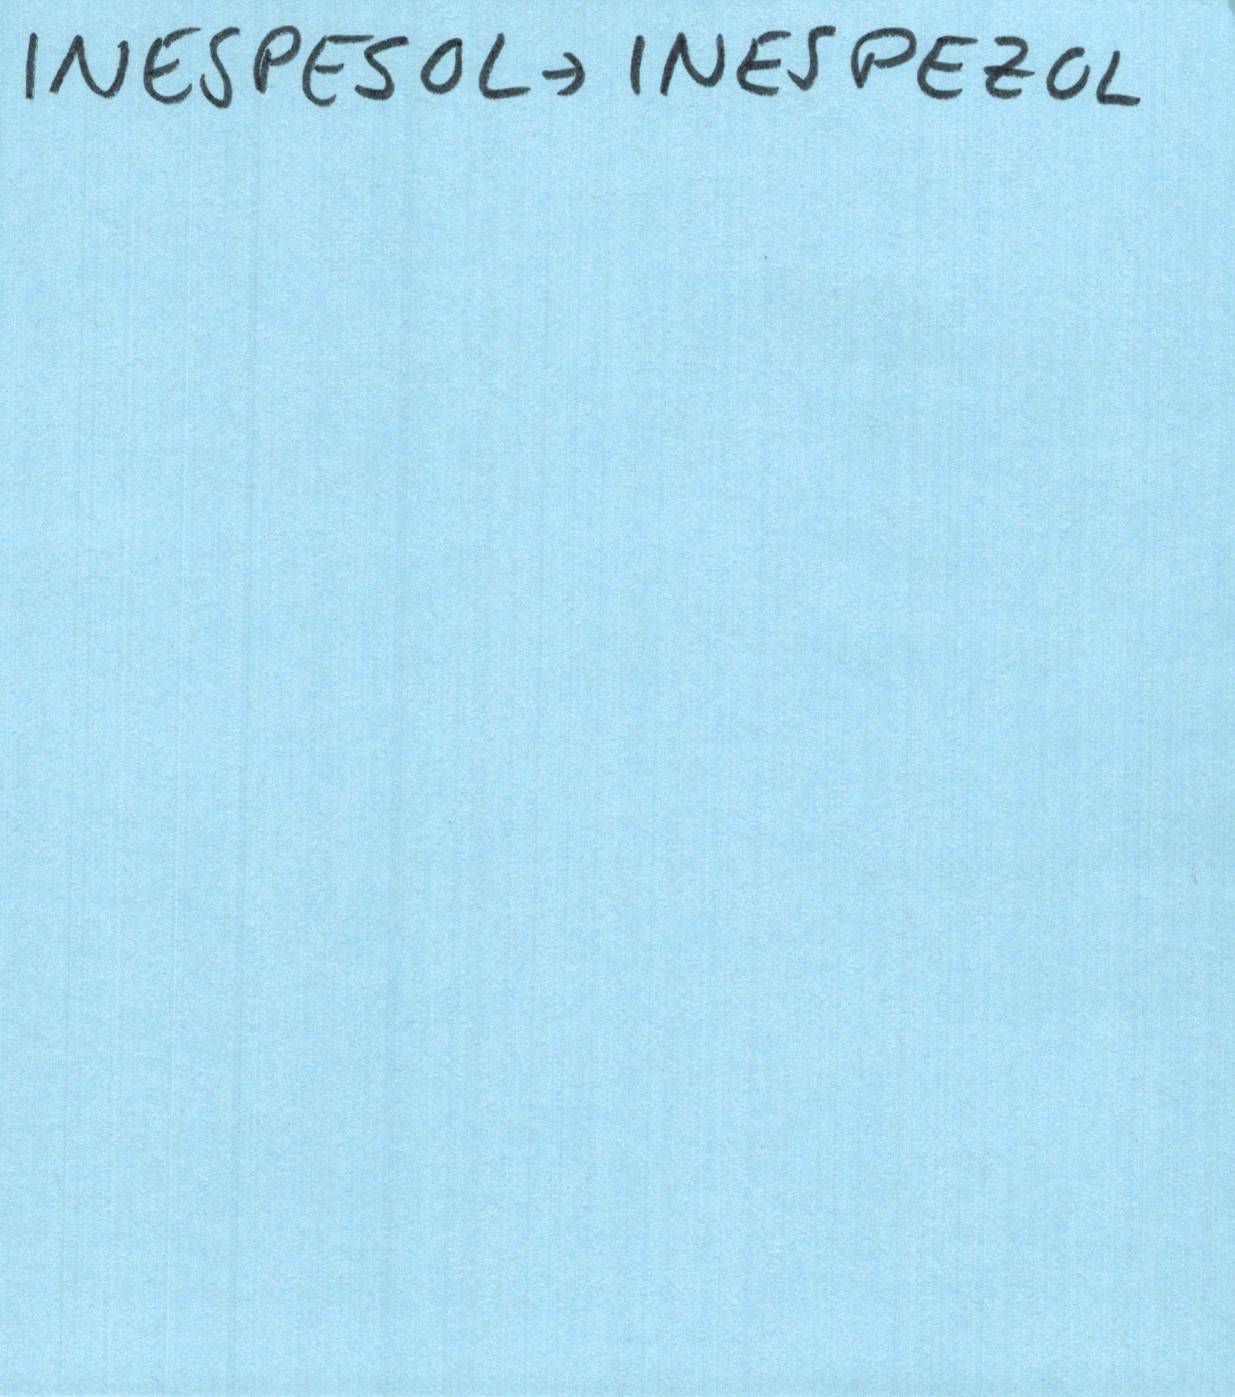 INESPESOL → INESPEZOL